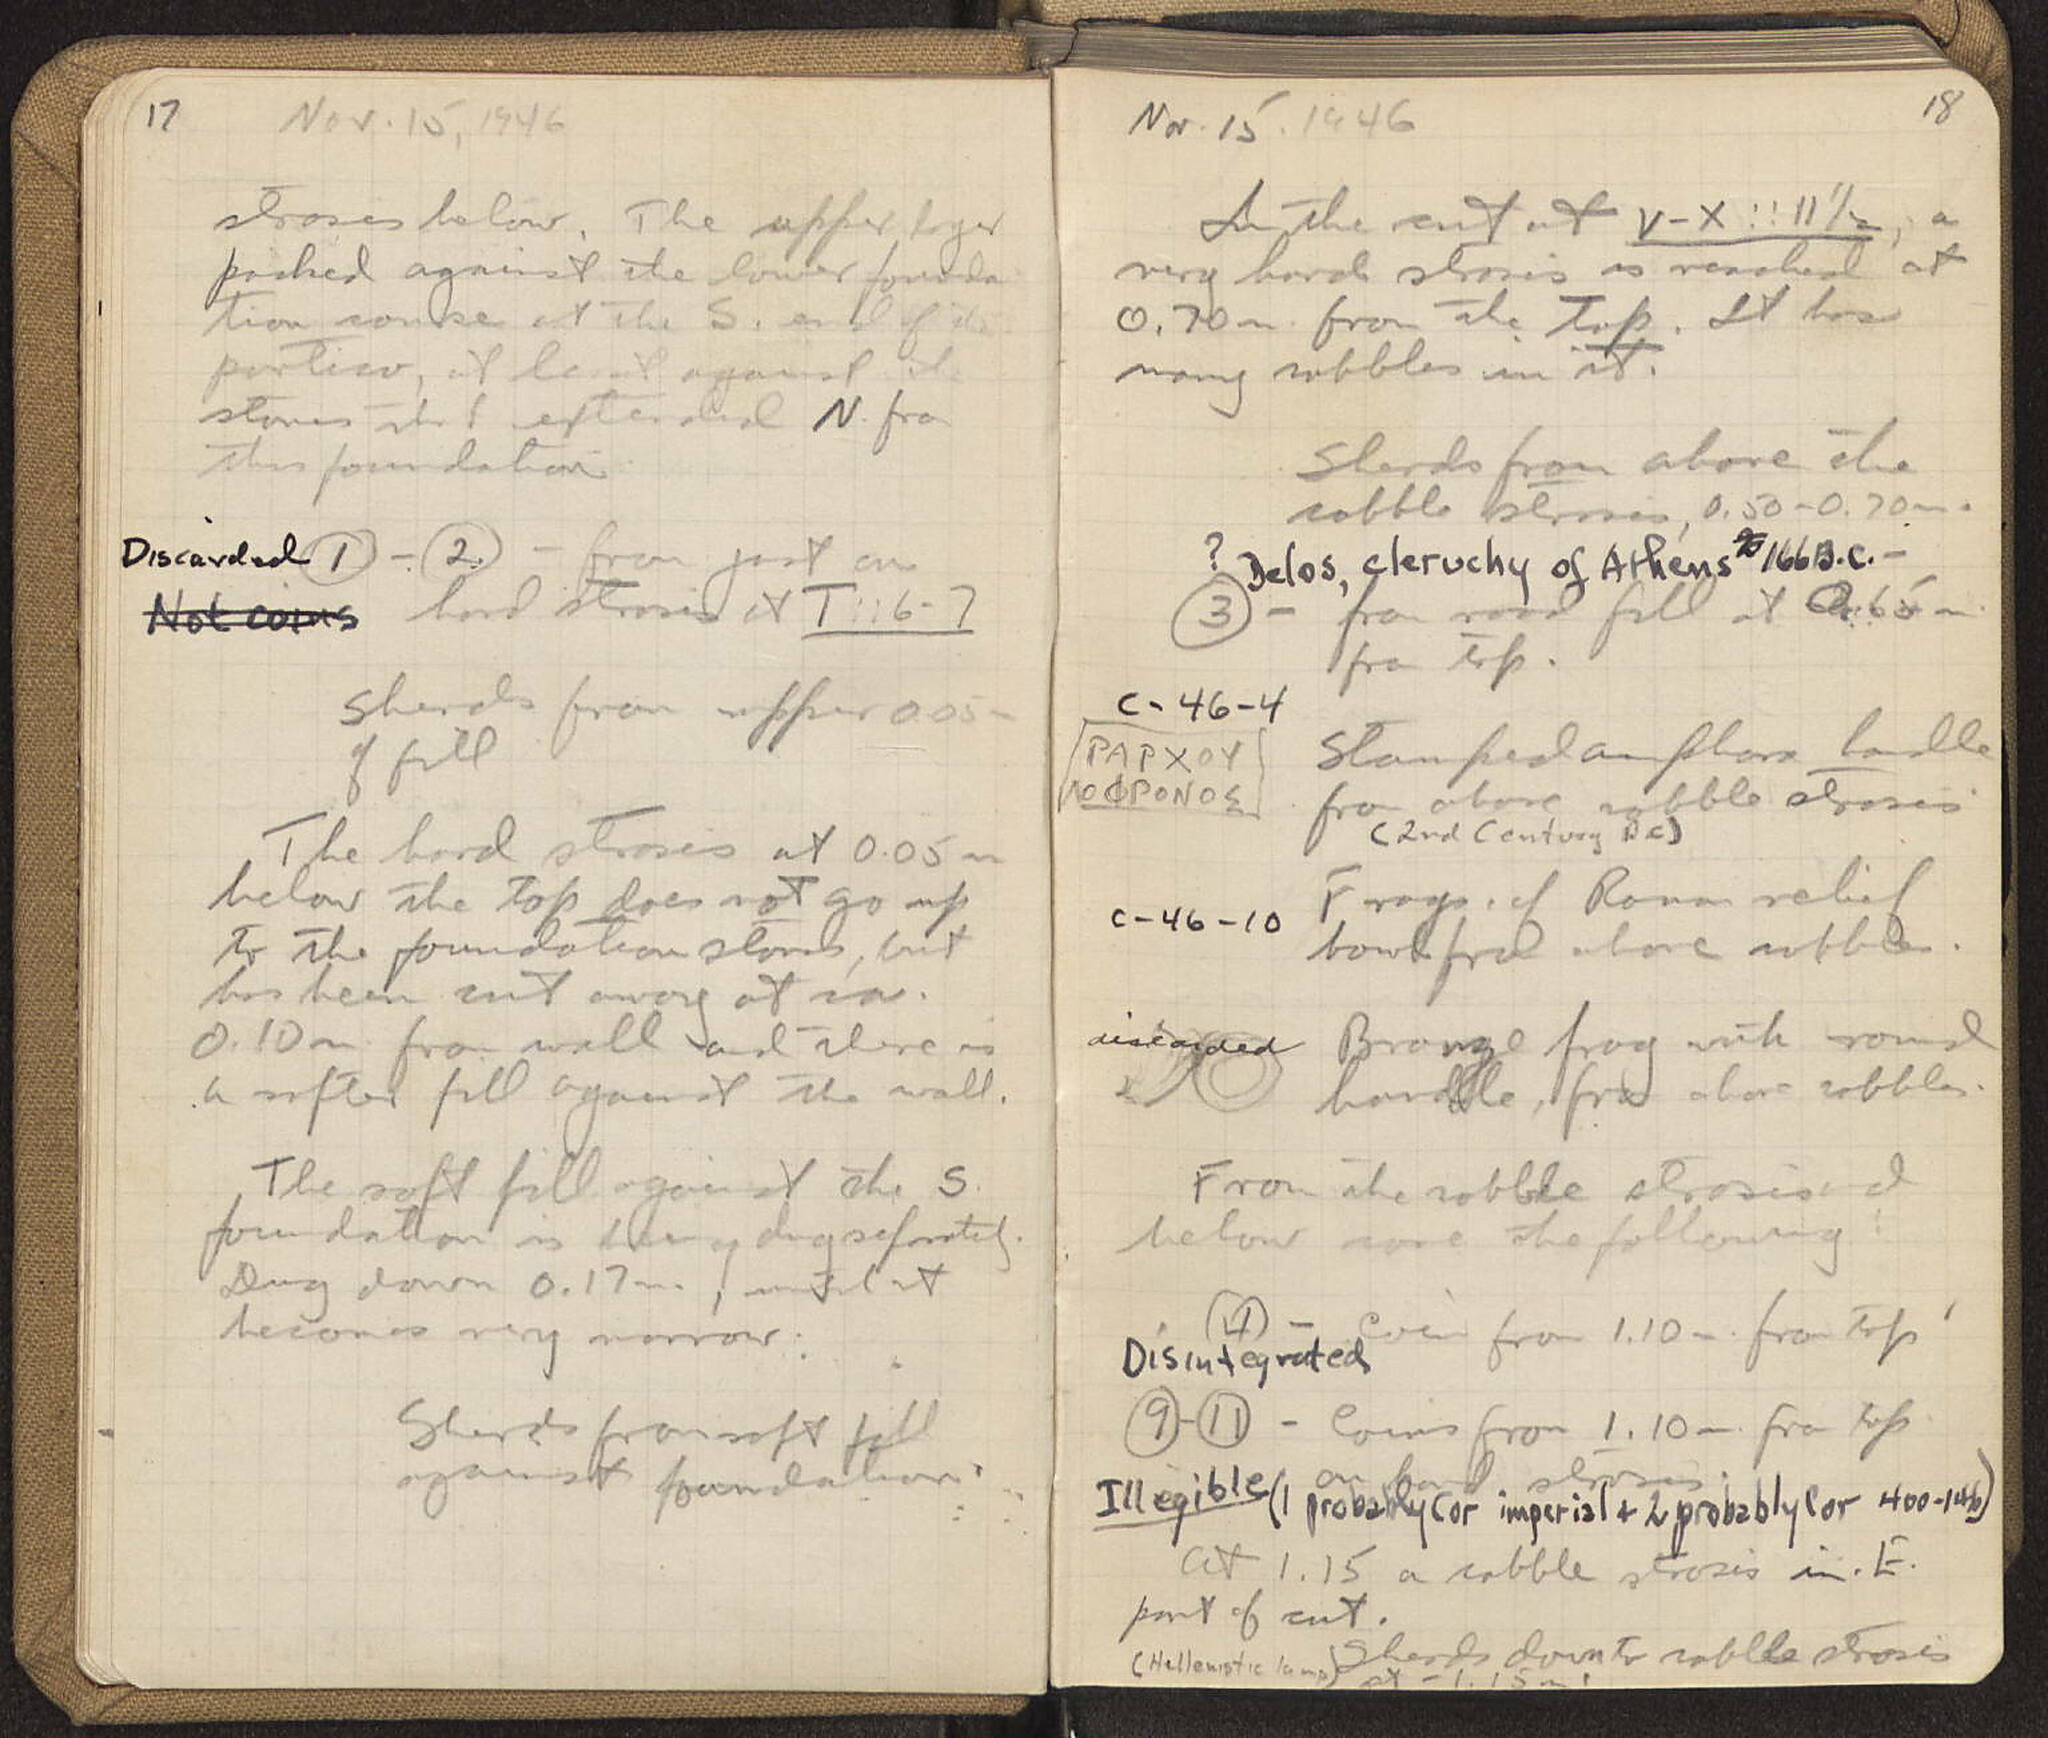 17 Nov. 15, 1946
stroses below. The upper layer
packed against the lower founda
tion course at the S. end of the
portico, at least against the
stones that extended N. from
this foundation.
Discarded 1 - 2 - from just on
Not coins hard strosis at T::6-7
Sherds from upper 0.05 m
of fill
The hard strosis at 0.05 m
below the top does not go up
to the foundation stones, but
has been cut away at ca.
0.10 m. from wall and there is
a softer fill against the wall.
The soft fill against the S.
foundation is being dug separately.
Dug down 0.17 m., until it
becomes very narrow.
Sherds from soft fill
against foundation.
Nov. 15. 1946 18
In the cut at V-X::11½, a
very hard strosis is reached at
0.70 m. from the top. It has
many cobbles in it.
Sherds from above the
cobble strosis, 0.50-0.70 m.
? Delos, cleruchy of Athens 166 B.C. -
3 - from road fill at 0.65 m.
from top.
C-46-4
ΡΑΡΧΟΥ
ΛΟΦΡΟΝΟΣ
Stamped amphora handle
from above cobble strosis
(2nd Century BC)
C-46-10 Frags. of Roman relief
bowl from above cobbles.
discarded Bronze frag with round
handle, from above cobbles.
From the cobble strosis and
below come the following:
4 - Coin from 1.10 m. from top
Disintegrated
9-11 - Coins from 1.10 m. from top
on hard strosis.
Illegible (1 probably Cor imperial + 2 probably Cor 400-146)
At 1.15 a cobble strosis in E.
part of cut.
(Hellenistic lamp) Sherds down to cobble strosis
at -1.15 m.